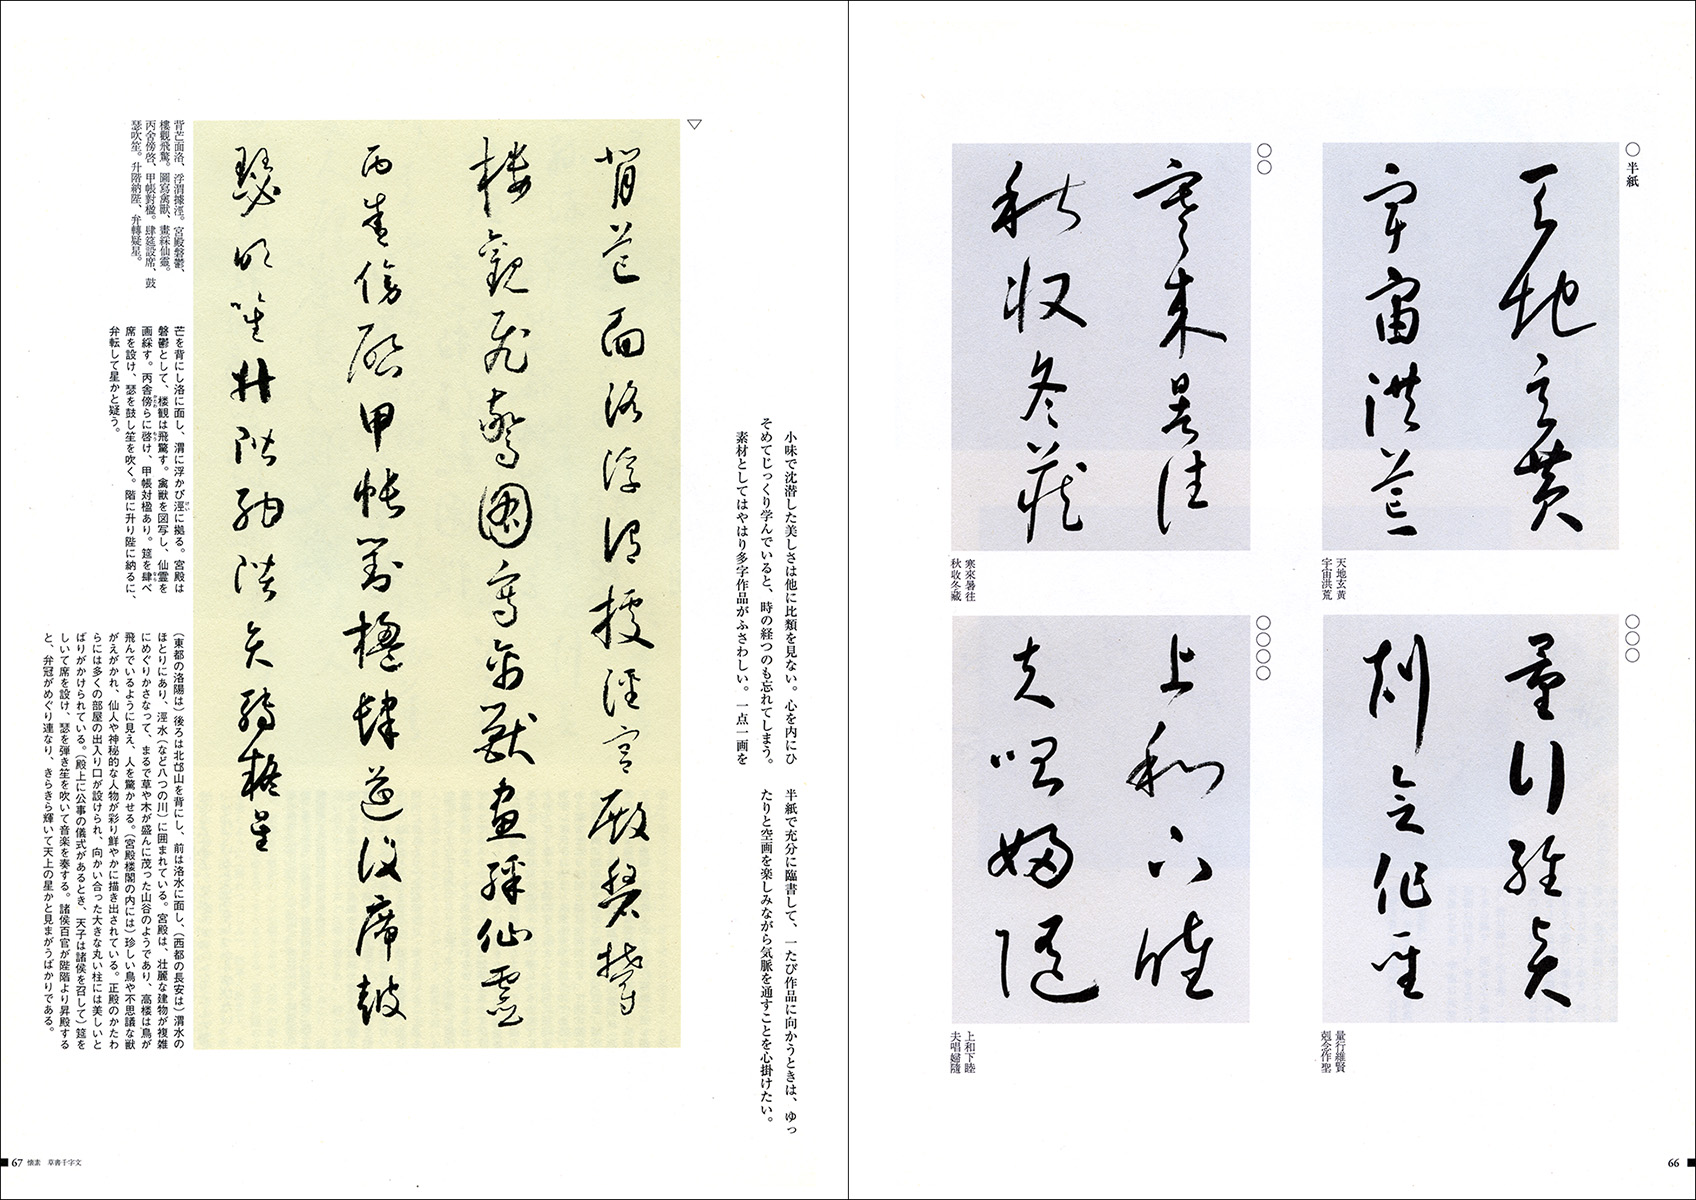 ○半紙
天地玄黃
宇宙洪荒
天地玄黃
宇宙洪荒
○○
寒來暑往
秋收冬藏
寒來暑往
秋收冬藏
○○○
量行維賢
剋念作聖
量行維賢
剋念作聖
○○○○
上和下睦
夫唱婦隨
上和下睦
夫唱婦隨
66
小味で沈潜した美しさは他に比類を見ない。心を内にひ
そめてじっくり学んでいると、時の経つのも忘れてしまう。
素材としてはやはり多字作品がふさわしい。一点一画を
半紙で充分に臨書して、一たび作品に向かうときは、ゆっ
たりと空画を楽しみながら気脈を通すことを心掛けたい。
▽
背芒面洛浮渭據涇宮殿磐鬱
樓觀飛驚圖寫禽獸畫綵仙靈
丙舍傍啓甲帳對楹肆筵設席鼓
瑟吹笙升階納陛弁轉疑星
背芒面洛、浮渭據涇。宮殿磐鬱、
樓觀飛驚。圖寫禽獸、畫綵仙靈。
丙舍傍啓、甲帳對楹。肆筵設席、鼓
瑟吹笙。升階納陛、弁轉疑星。
芒を背にし洛に面し、渭に浮かび涇に拠る。宮殿は
磐鬱として、楼観は飛驚す。禽獣を図写し、仙霊を
画綵す。丙舎傍らに啓け、甲帳対楹あり。筵を肆べ
席を設け、瑟を鼓し笙を吹く。階に升り陛に納るに、
弁転して星かと疑う。
（東都の洛陽は）後ろは北邙山を背にし、前は洛水に面し、（西都の長安は）渭水の
ほとりにあり、涇水（など八つの川）に囲まれている。宮殿は、壮麗な建物が複雑
にめぐりかさなって、まるで草や木が盛んに茂った山谷のようであり、高楼は鳥が
飛んでいるように見え、人を驚かせる。（宮殿楼閣の内には）珍しい鳥や不思議な獣
がえがかれ、仙人や神秘的な人物が彩り鮮やかに描き出されている。正殿のかたわ
らには多くの部屋の出入り口が設けられ、向かい合った大きな丸い柱には美しいと
ばりがかけられている。（殿上に公事の儀式があるとき、天子は諸侯を召して）筵を
しいて席を設け、瑟を弾き笙を吹いて音楽を奏する。諸侯百官が陛階より昇殿する
と、弁冠がめぐり連なり、きらきら輝いて天上の星かと見まがうばかりである。
67 懐素 草書千字文